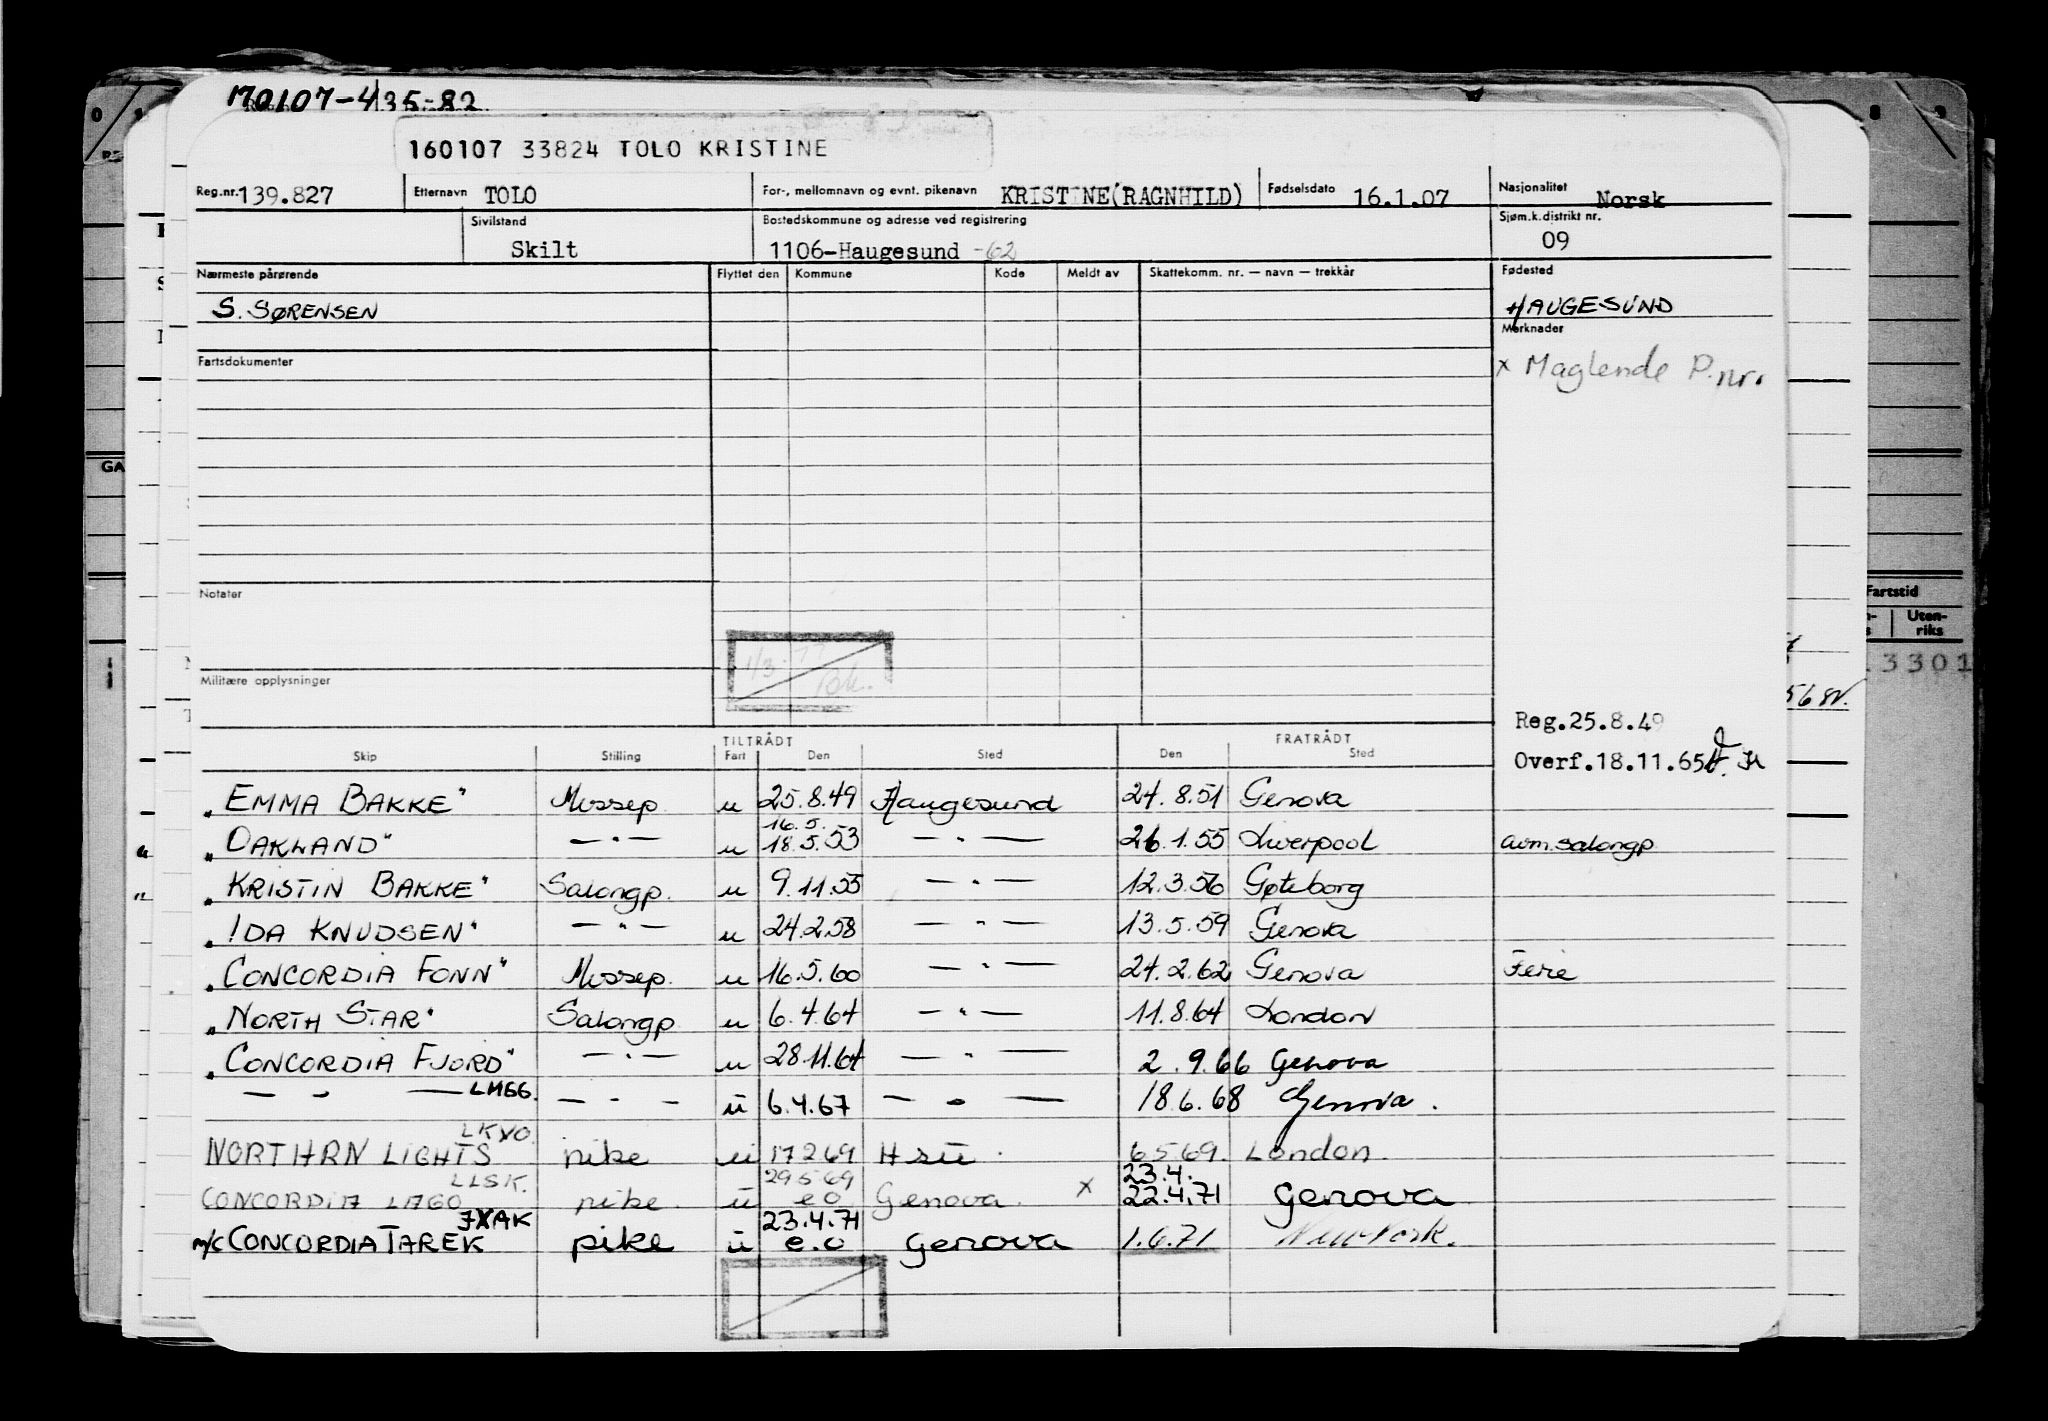 170107-435-82
160107 33824 TOLO KRISTINE
Reg.nr. 139.827 Etternavn TOLO For-, mellomnavn og evnt. pikenavn KRISTINE(RAGNHILD) Fødselsdato 16.1.07 Nasjonalitet Norsk
Sivilstand Skilt Bostedskommune og adresse ved registrering 1106-Haugesund -62 Sjøm.k.distrikt nr. 09
Nærmeste pårørende Flyttet den Kommune Kode Meldt av Skattekomm. nr. — navn — trekkår Fødested
S. SØRENSEN HAUGESUND
Merknader
Fartsdokumenter x Maglende P.nr.
GA
Notater Fartstid
Uten-
riks
3301
Militære opplysninger
Reg.25.8.49
TILTRÅDT FRATRÅDT
Skip Stilling Fart Den Sted Den Sted
Overf.18.11.65
"EMMA BAKKE" Messep. u 25.8.49 Haugesund 24.8.51 Genova
16.5.
"OAKLAND" — " — u 18.5.53 — " — 26.1.55 Liverpool avm.salongp
"KRISTIN BAKKE" Salongp. u 9.11.55 — " — 12.3.56 Gøteborg
"IDA KNUDSEN" — " — u 24.2.58 — " — 13.5.59 Genova
"CONCORDIA FONN" Messep. u 16.5.60 — " — 24.2.62 Genova Ferie
"NORTH STAR" Salongp u 6.4.64 — " — 11.8.64 London
"CONCORDIA FJORD" — " — u 28.11.64 — " — 2.9.66 Genova
— " — LMGG. — " — u 6.4.67 — " — 18.6.68 Genova.
LKVO.
NORTHRN LIGHTS pike u 17 2 69 Hsu 6 5 69. London.
LLSK. 29 5 69 23.4.
CONCORDIA LAGO pike. u e o Genova. x 22.4.71 Genova
JXAK 23.4.71
m/c CONCORDIA TAREK pike u e.o Genova 1.6.71 New York.